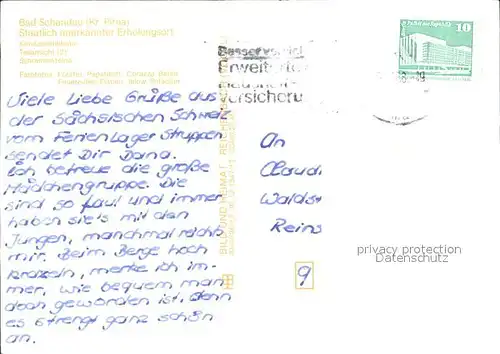 Bad Schandau (Kr. Pirna)
Staatlich anerkannter Erholungsort
10
Besser
Erweiterte
Haushalt
versicheru
Viele Liebe Grüße aus
der Sächsischen Schweiz
vom Ferien Lager Struppen
sendet Dir Dana.
Ich betreue die große
Mädchengruppe. Die
sind so faul und immer
haben sie's mit den
Jungen, manchmal reichts
mir. Beim Berge hoch
kraxeln, merke ich im-
mer, wie bequem man
doch geworden ist, denn
es strengt ganz schön
an.
BILD UND HEIMAT REICHENBACH
An
Claudi
Waldst
Reins
9
privacy protection
Datenschutz